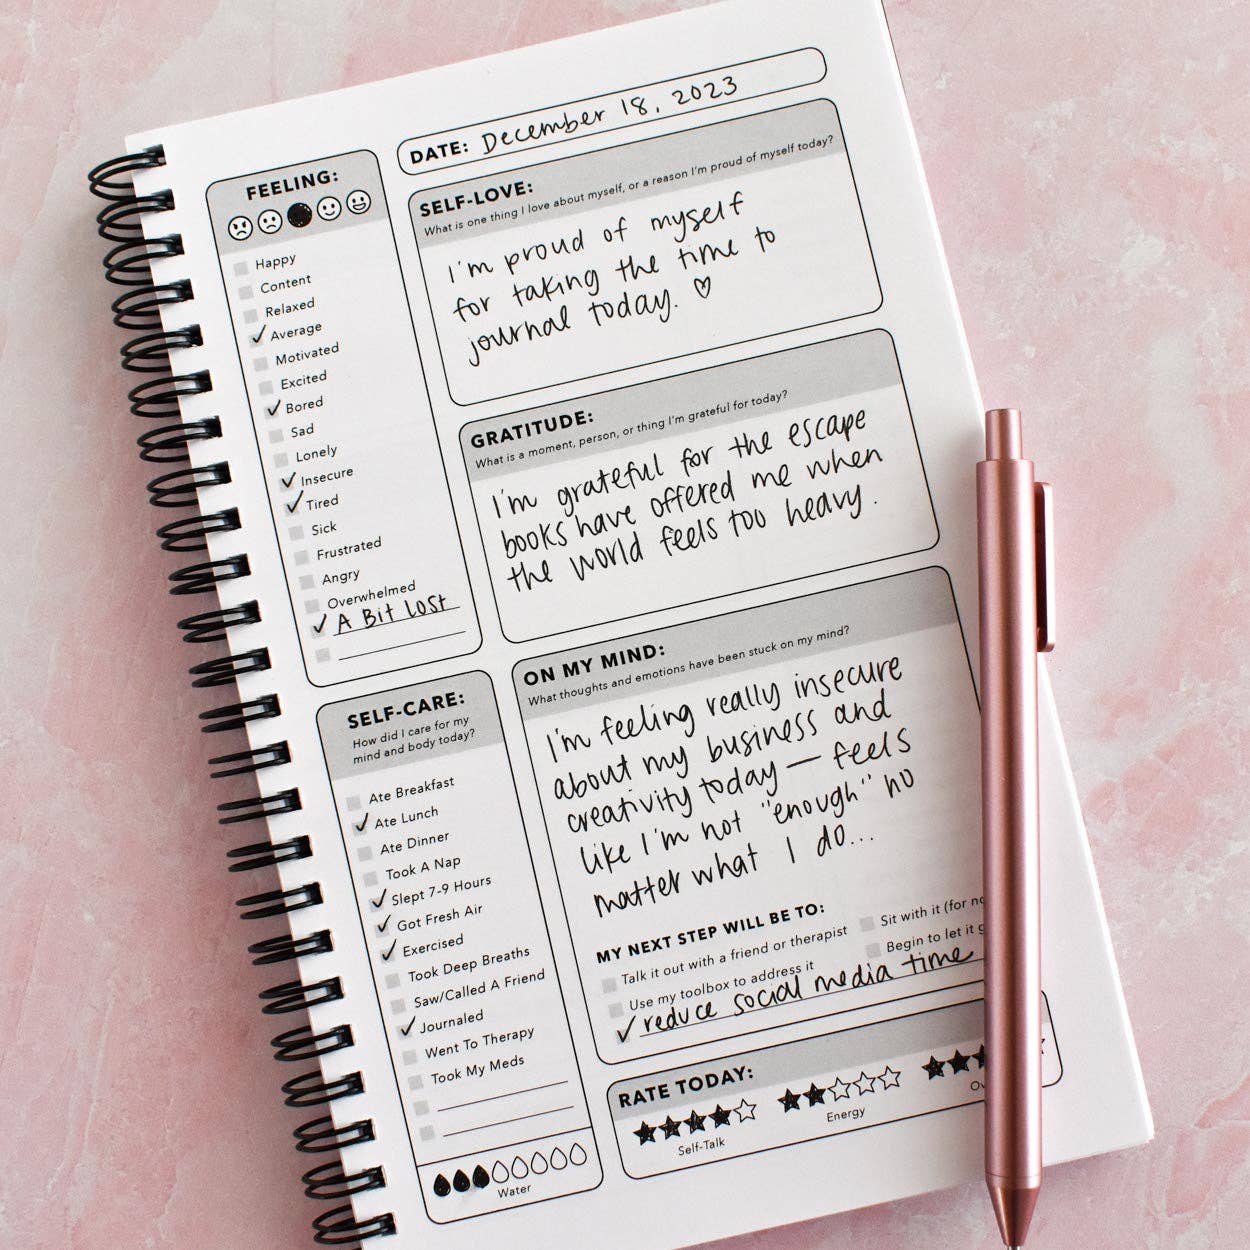 DATE: December 18, 2023
FEELING:
Happy
Content
Relaxed
Average
Motivated
Excited
Bored
Sad
Lonely
Insecure
Tired
Sick
Frustrated
Angry
Overwhelmed
A Bit Lost
SELF-LOVE:
What is one thing I love about myself, or a reason I'm proud of myself today?
I'm proud of myself
for taking the time to
journal today. ♡
GRATITUDE:
What is a moment, person, or thing I'm grateful for today?
I'm grateful for the escape
books have offered me when
the world feels too heavy.
SELF-CARE:
How did I care for my
mind and body today?
Ate Breakfast
Ate Lunch
Ate Dinner
Took A Nap
Slept 7-9 Hours
Got Fresh Air
Exercised
Took Deep Breaths
Saw/Called A Friend
Journaled
Went To Therapy
Took My Meds
Water
ON MY MIND:
What thoughts and emotions have been stuck on my mind?
I'm feeling really insecure
about my business and
creativity today — feels
like I'm not "enough" no
matter what I do...
MY NEXT STEP WILL BE TO:
Talk it out with a friend or therapist
Sit with it (for
Use my toolbox to address it
Begin to let it
reduce social media time
RATE TODAY:
Self-Talk
Energy